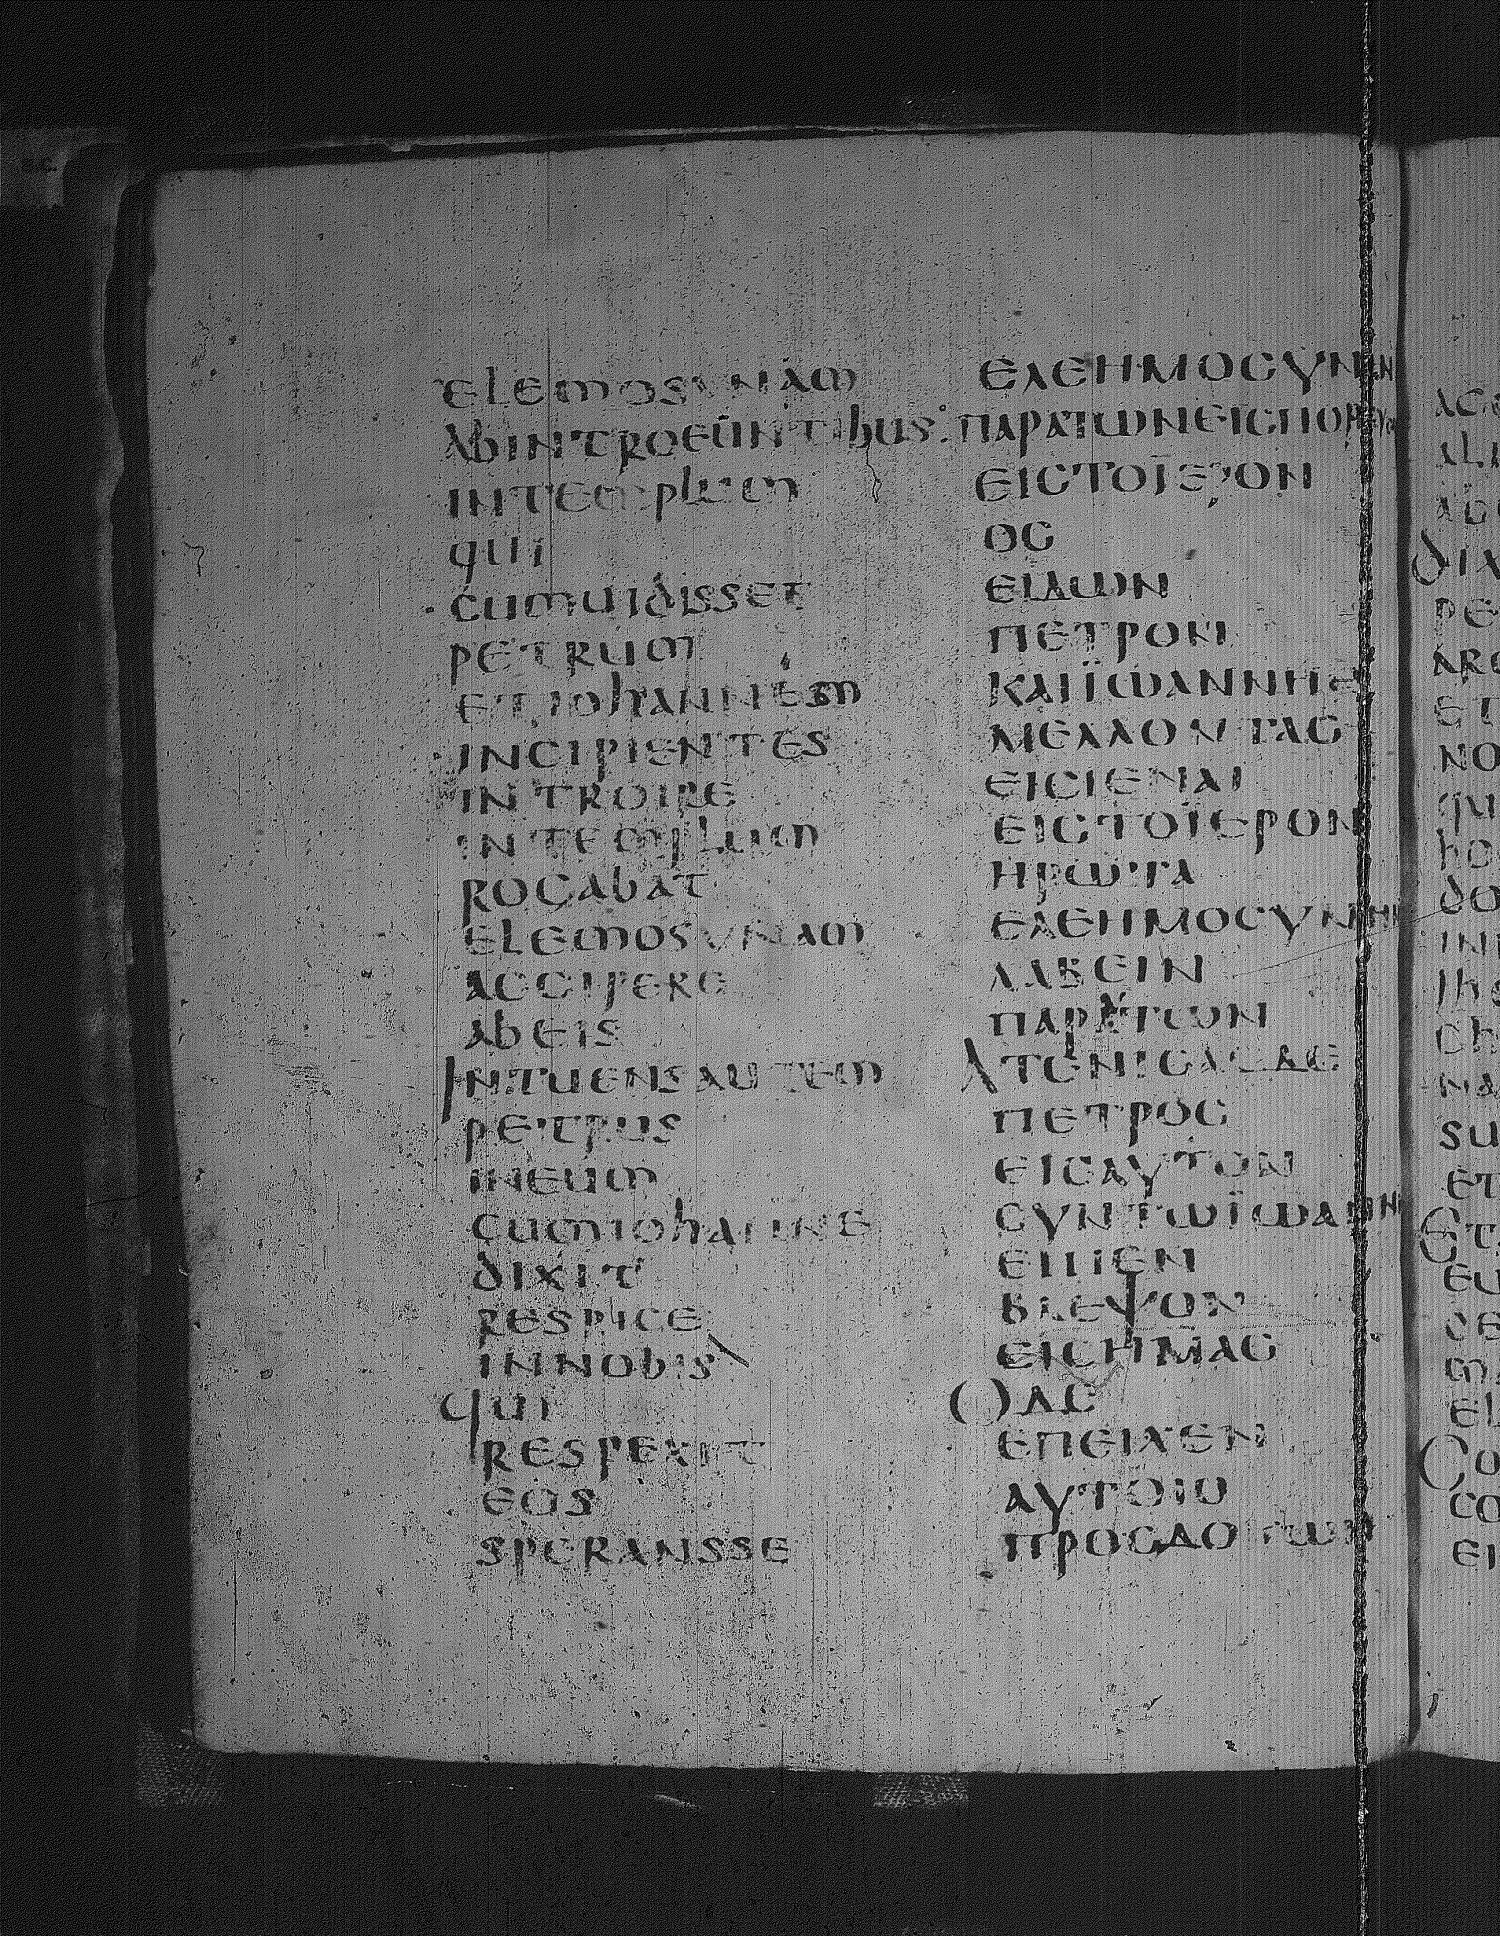 elemosynam
abintroeuntibus:
intemplum
qui
cumuidisset
petrum
etiohannem
incipientes
introire
intemplum
rogabat
elemosynam
accipere
abeis
Intuensautem
petrus
ineum
cumiohanne
dixit
respice
innobis
qui
respexit
eos
speransse
ΕΛΕΗΜΟCΥΝΗΝ
ΠΑΡΑΤΩΝΕΙCΠΟΡΕΥΟ
ΕΙCΤΟΪΕΡΟΝ
ΟC
ΕΙΔΩΝ
ΠΕΤΡΟΝ
ΚΑΙΪΩΑΝΝΗΝ
ΜΕΛΛΟΝΤΑC
ΕΙCΙΕΝΑΙ
ΕΙCΤΟΪΕΡΟΝ
ΗΡΩΤΑ
ΕΛΕΗΜΟCΥΝΗΝ
ΛΑΒΕΙΝ
ΠΑΡΑΤΩΝ
ΑΤΕΝΙCΑCΔΕ
ΠΕΤΡΟC
ΕΙCΑΥΤΟΝ
CΥΝΤΩΪΩΑΝΝΗ
ΕΙΠΕΝ
ΒΛΕΨΟΝ
ΕΙCΗΜΑC
ΟΔΕ
ΕΠΕΙΧΕΝ
ΑΥΤΟΙC
ΠΡΟCΔΟΚΩΝ